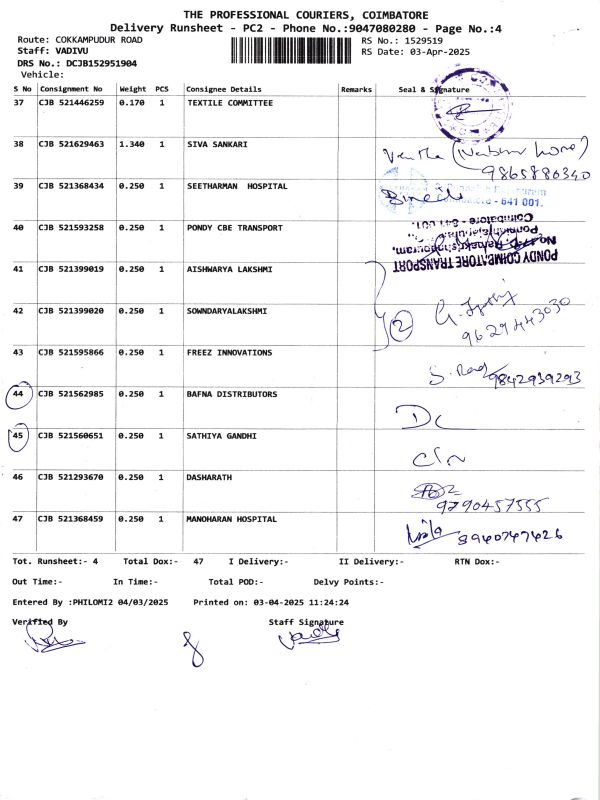 THE PROFESSIONAL COURIERS, COIMBATORE
Delivery Runsheet - PC2 - Phone No.:9047080280 - Page No.:4
Route: COKKAMPUDUR ROAD
Staff: VADIVU
DRS No.: DCJB152951904
Vehicle:
RS No.: 1529519
RS Date: 03-Apr-2025
S No Consignment No Weight PCS Consignee Details Remarks Seal & Signature
37 CJB 521446259 0.170 1 TEXTILE COMMITTEE
38 CJB 521629463 1.340 1 SIVA SANKARI
9865886340
39 CJB 521368434 0.250 1 SEETHARMAN HOSPITAL
- 641 001.
40 CJB 521593258 0.250 1 PONDY CBE TRANSPORT
PONDY COIMBATORE TRANSPORT
Coimbatore - 641 001.
41 CJB 521399019 0.250 1 AISHWARYA LAKSHMI
42 CJB 521399020 0.250 1 SOWNDARYALAKSHMI
2
9629443030
43 CJB 521595866 0.250 1 FREEZ INNOVATIONS
9842939293
44 CJB 521562985 0.250 1 BAFNA DISTRIBUTORS
DC
45 CJB 521560651 0.250 1 SATHIYA GANDHI
46 CJB 521293670 0.250 1 DASHARATH
9790457555
47 CJB 521368459 0.250 1 MANOHARAN HOSPITAL
8940747426
Tot. Runsheet:- 4 Total Dox:- 47 I Delivery:- II Delivery:- RTN Dox:-
Out Time:- In Time:- Total POD:- Delvy Points:-
Entered By :PHILOMI2 04/03/2025 Printed on: 03-04-2025 11:24:24
Verified By Staff Signature